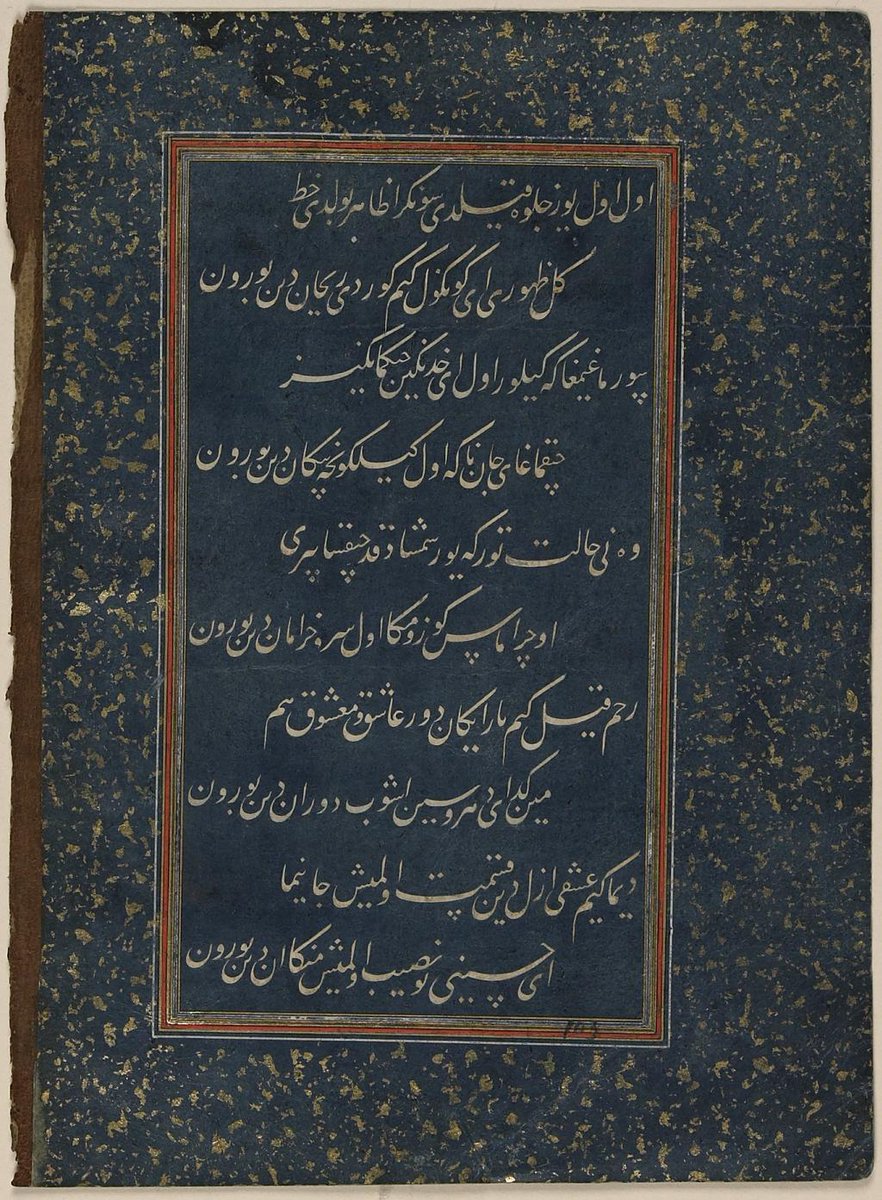 اول اول یوز جلوه قیلدی سونکرا ظاهر بولدی خط
کل ظهوری ای کونکول کیم کوردی ریحان دین بورون
یوز ماغیمغا که کیلور اول ای خدنکین چیکمانکیز
چیقماغای جان تا که اول کیلکونچه پیکان دین بورون
وه نی حالت تور که یوز شمشاد قد چیقسا پری
اوچراماس کوزومکا اول سرو خرامان دین بورون
رحم قیل کیم بار ایکان دور عاشق و معشوق هم
مین کدای دهر و سین آشوب دوران دین بورون
دیما کیم عشقی ازل دین قسمت اولمیش جانیما
ای حسینی بو نصیب اولمیش منکا اندین بورون